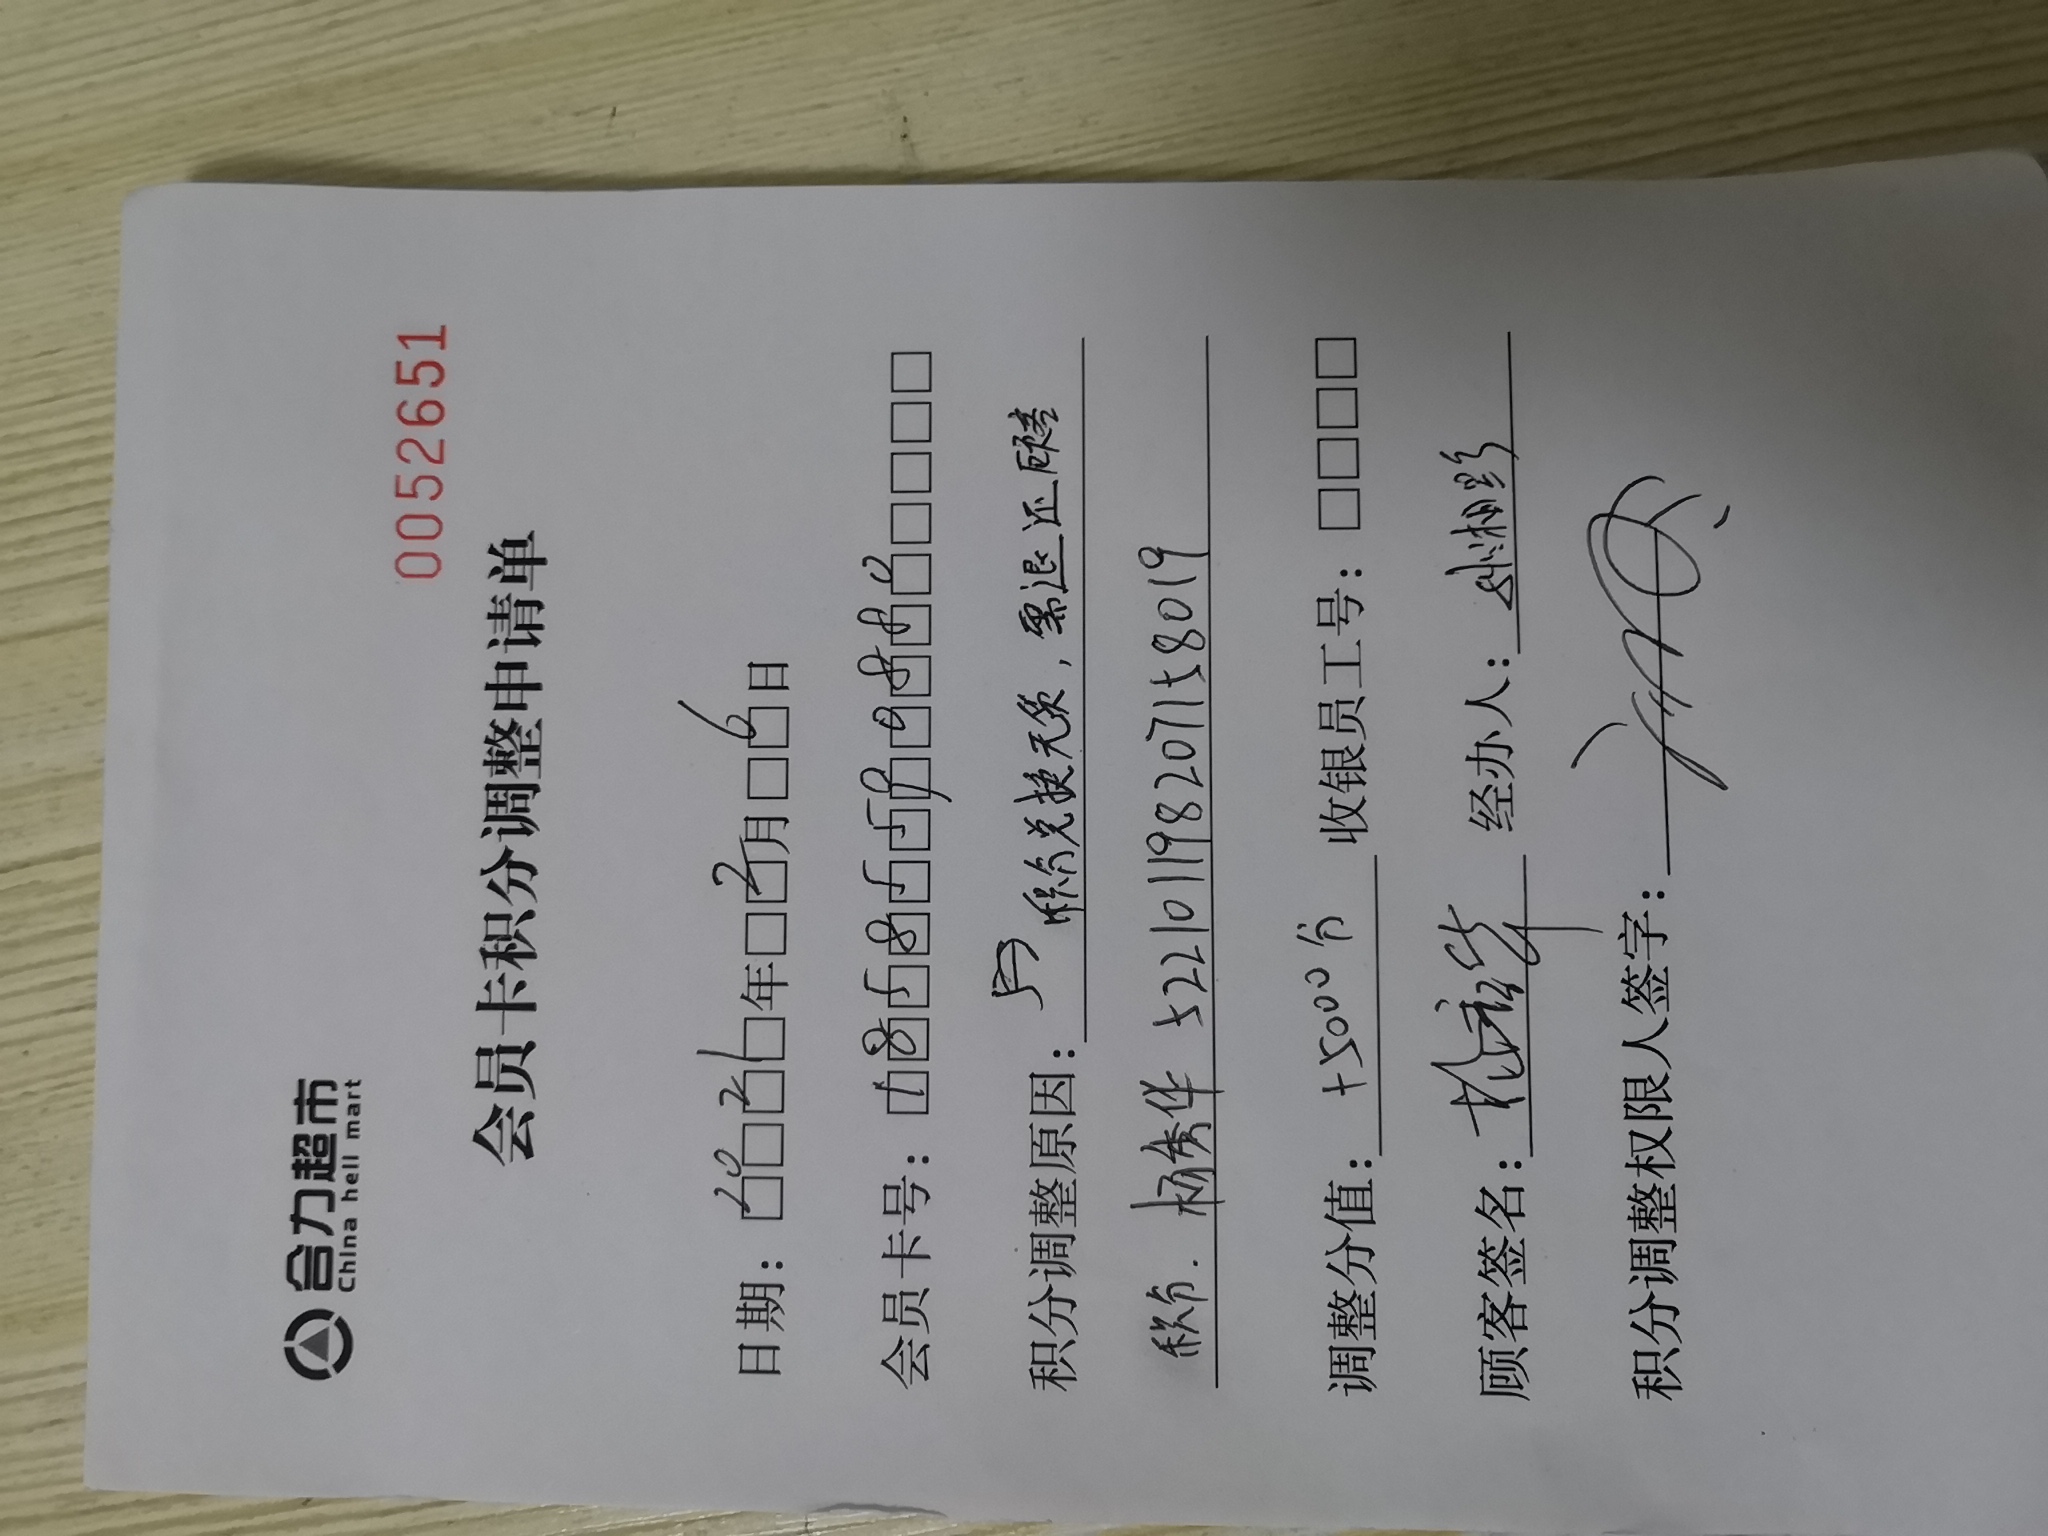 合力超市
China hell mart
0052651
会员卡积分调整申请单
日期：2021年2月6日
会员卡号：18585599880
积分调整原因：积分兑换无货，需退还顾客
积分. 杨秀华 522101198207158019
调整分值：+5000分 收银员工号：
顾客签名：杨秀华 经办人：
积分调整权限人签字：